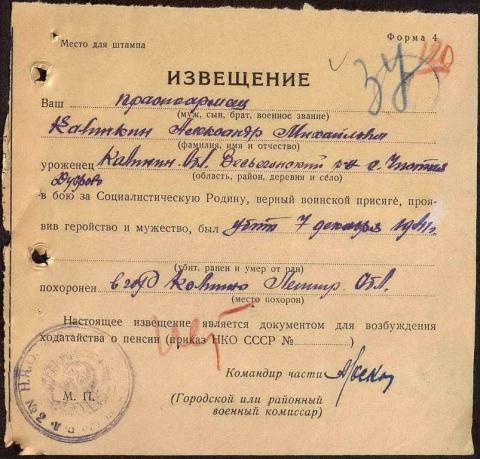 Форма 4
Место для штампа
зу 120
ИЗВЕЩЕНИЕ
Ваш красноармеец
(муж, сын, брат, военное звание)
Калинкин Александр Михайлович
(фамилия, имя и отчество)
уроженец Калинин. Обл. Весьегонский р-н д. Чистая
(область, район, деревня и село)
Дуброва
в бою за Социалистическую Родину, верный воинской присяге, проя-
вив геройство и мужество, был убит 7 декабря 1941 г.
(убит, ранен и умер от ран)
похоронен Ленингр. Обл.
(место похорон)
Настоящее извещение является документом для возбуждения
ходатайства о пенсии (приказ НКО СССР № )
нет
Командир части
М. П.
(Городской или районный
военный комиссар)